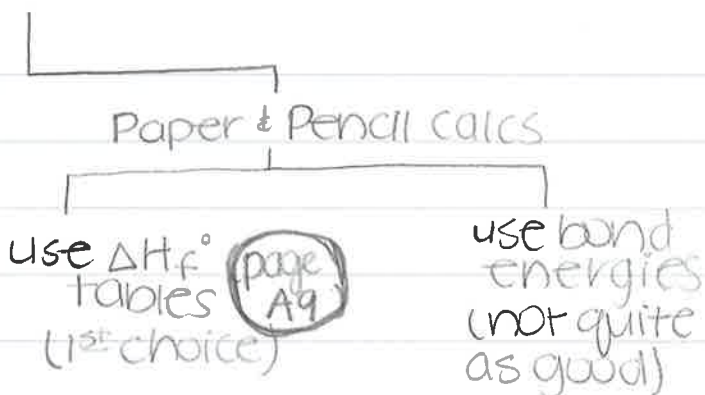 Paper & Pencil calcs
use ΔHf°
tables
(1st choice)
page
A9
use bond
energies
(not quite
as good)